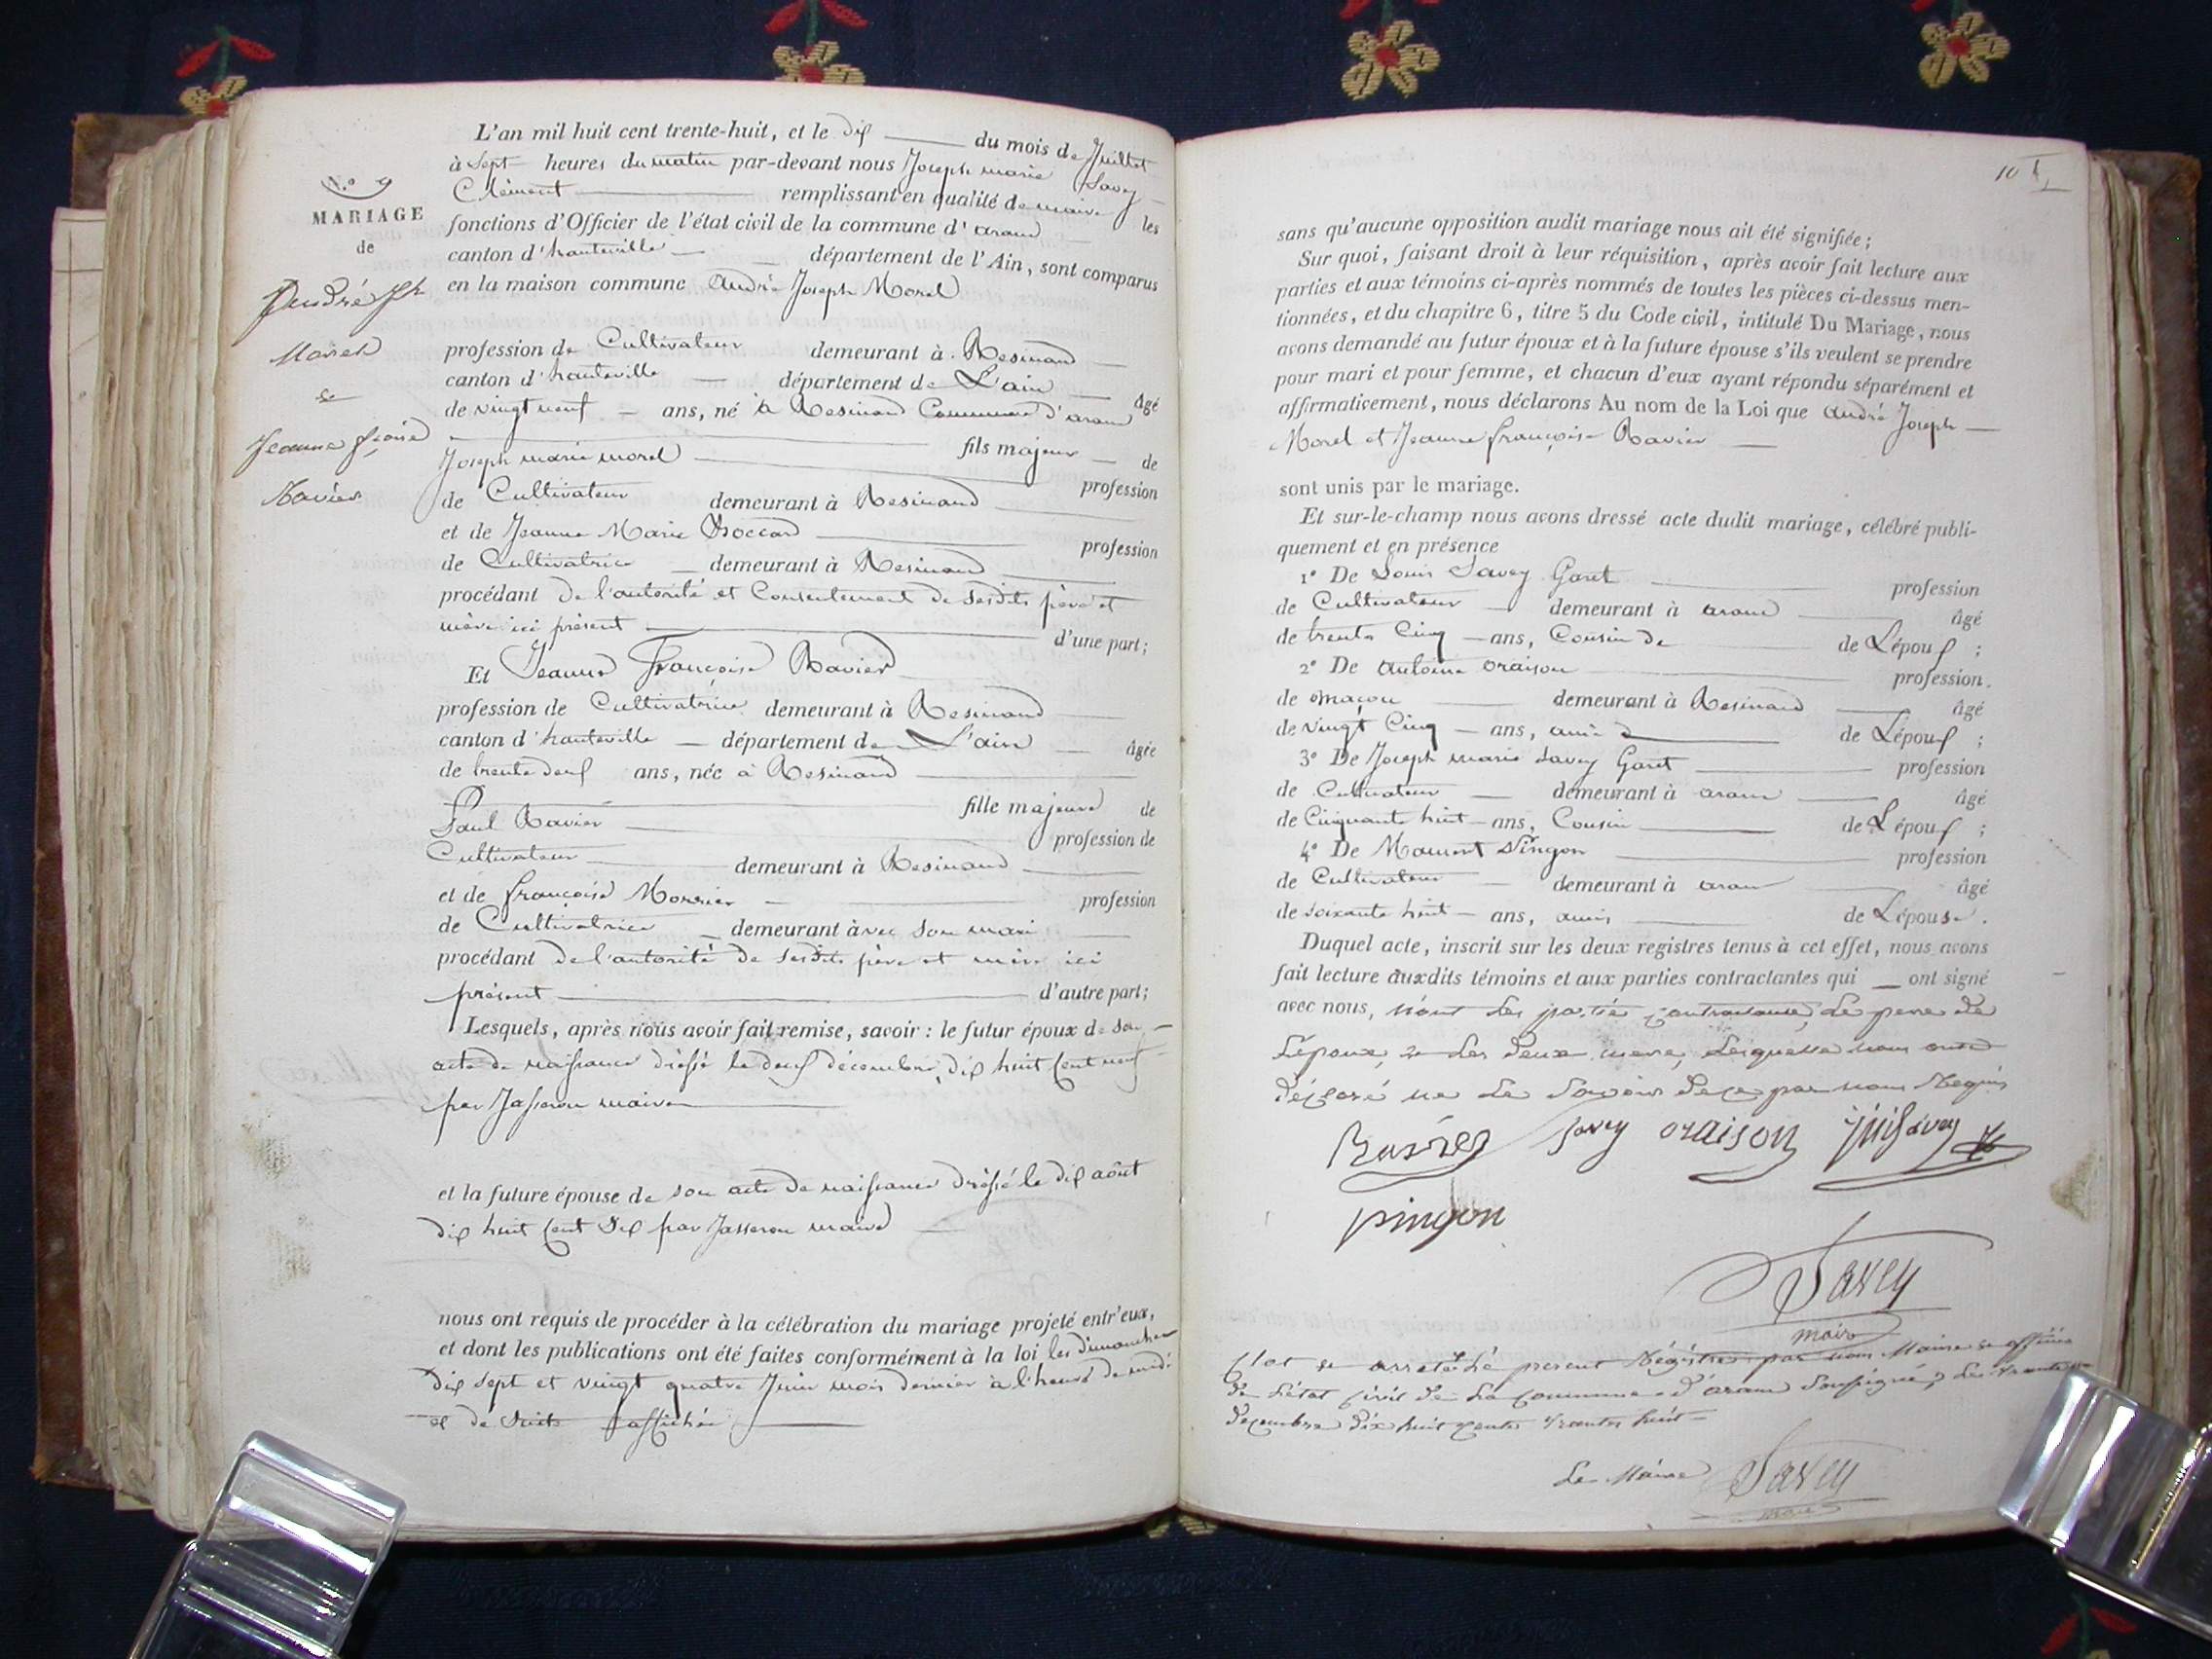 L'an mil huit cent trente-huit, et le dix du mois de Juillet
à sept heures du matin par-devant nous Joseph marie Savey
Clément remplissant en qualité de maire les
fonctions d'Officier de l'état civil de la commune d'aran
canton d'hauteville département de l'Ain, sont comparus
en la maison commune André Joseph Morel
N.º 9
MARIAGE
de
André Jh
Morel
et
Jeanne fçoise
Ravier
profession de Cultivateur demeurant à Resinand
canton d'hauteville département de L'ain âgé
de vingt neuf ans, né à Resinand Commune d'aran
fils majeur de
Joseph marie morel profession
de Cultivateur demeurant à Resinand
et de Jeanne Marie Boccard profession
de Cultivatrice demeurant à Resinand
procédant de l'autorité et Consentement de sesdits père et
mère ici présent d'une part;
Et Jeanne Françoise Ravier
profession de Cultivatrice demeurant à Resinand
canton d'hauteville département de L'ain âgée
de trente deux ans, née à Resinand
fille majeure de
Paul Ravier profession de
Cultivateur demeurant à Resinand
et de françoise profession
de Cultivatrice demeurant avec son mari
procédant de l'autorité de sesdits père et mère ici
présent d'autre part;
Lesquels, après nous avoir fait remise, savoir : le futur époux de son
acte de naissance dressé le deux décembre dix huit Cent neuf
par Jasseron maire
et la future épouse de son acte de naissance dressé le dix août
dix huit Cent Six par Jasseron maire
nous ont requis de procéder à la célébration du mariage projeté entr'eux,
et dont les publications ont été faites conformément à la loi les dimanches
dix sept et vingt quatre Juin mois dernier à l'heure de midi
et de suite affichée
10
sans qu'aucune opposition audit mariage nous ait été signifiée;
Sur quoi, faisant droit à leur réquisition, après avoir fait lecture aux
parties et aux témoins ci-après nommés de toutes les pièces ci-dessus men-
tionnées, et du chapitre 6, titre 5 du Code civil, intitulé Du Mariage, nous
avons demandé au futur époux et à la future épouse s'ils veulent se prendre
pour mari et pour femme, et chacun d'eux ayant répondu séparément et
affirmativement, nous déclarons Au nom de la Loi que André Joseph
Morel et Jeanne françoise Ravier
sont unis par le mariage.
Et sur-le-champ nous avons dressé acte dudit mariage, célébré publi-
quement et en présence
1º De Louis Savey Garet profession
de Cultivateur demeurant à aran âgé
de trente Cinq ans, Cousin de de L'époux ;
2º De antoine oraison profession.
de maçon demeurant à Resinand âgé
de vingt Cinq ans, ami d de L'époux ;
3º De Joseph marie Savey Garet profession
de Cultivateur demeurant à aran âgé
de Cinquante huit ans, Cousin de L'époux ;
4º De Mamert Pingon profession
de Cultivateur demeurant à aran âgé
de soixante huit ans, amis de L'épouse.
Duquel acte, inscrit sur les deux registres tenus à cet effet, nous avons
fait lecture auxdits témoins et aux parties contractantes qui ont signé
avec nous, non les partie contractante, Le pere de
L'époux, et Les deux mere, Lesquelle nous ont
déclaré ne Le Savoir de ce par nous Requis
Ravier Savey oraison Savey
pingon
Savey
maire
Clot et arrete Le present Régistre par nous Maire et officier
de L'état Civil de La Commune d'aran Soussigné, Le trente
decembre dix huit Cents trente huit
Le Maire Savey
maire